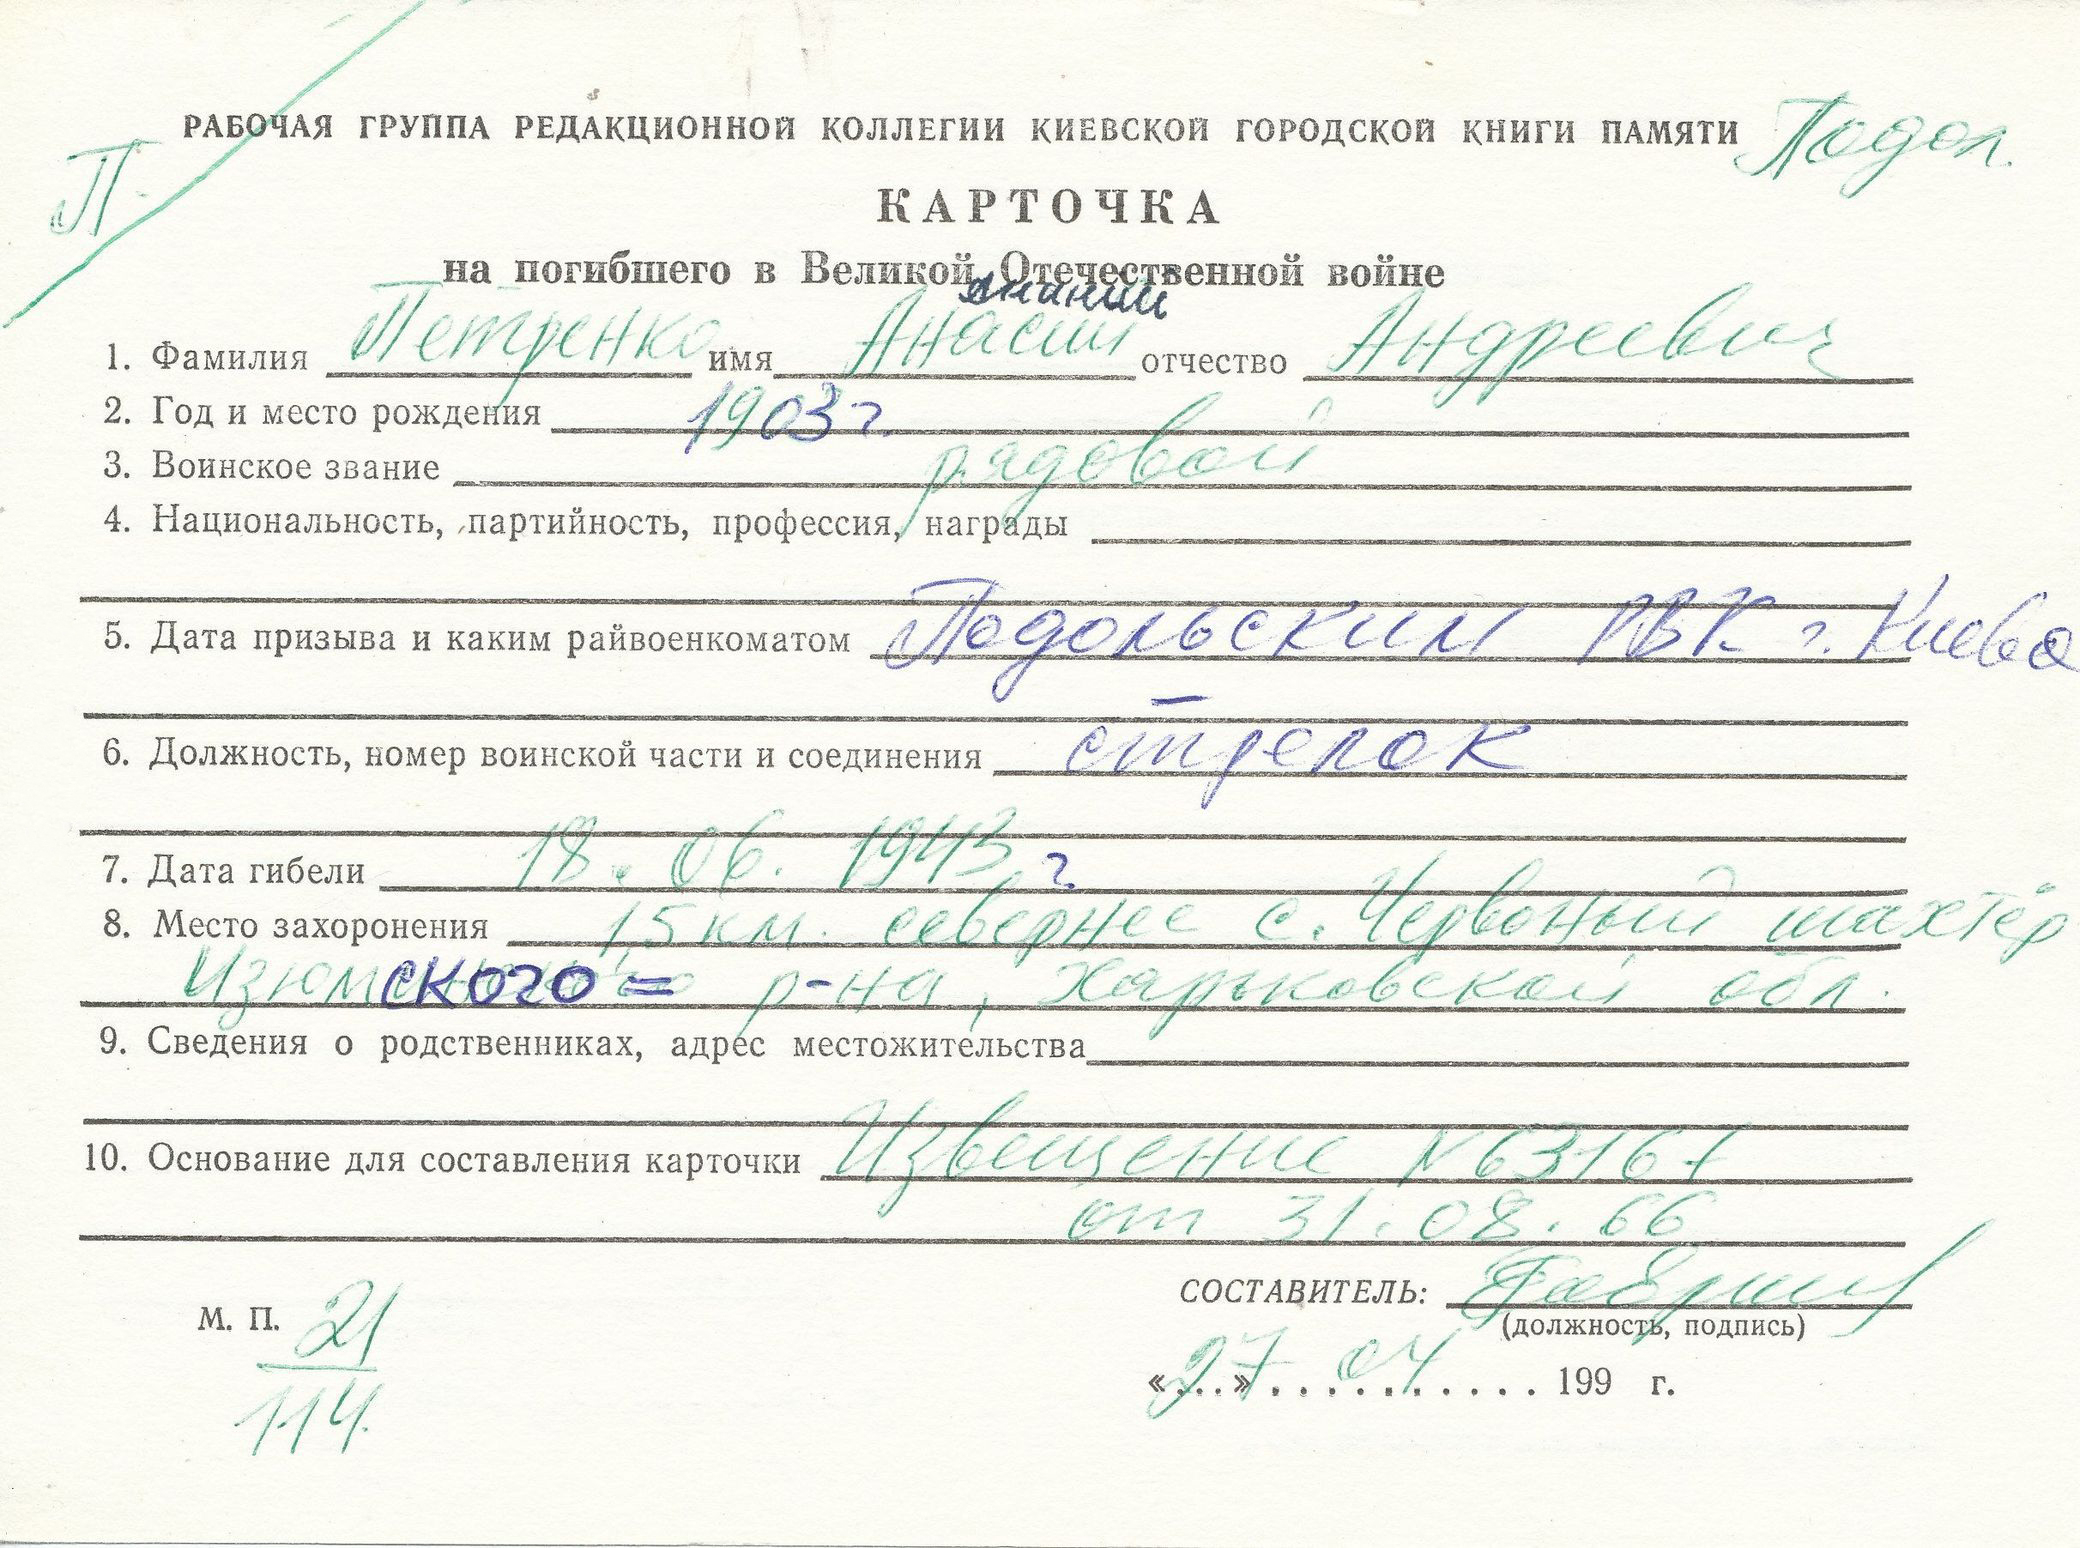 РАБОЧАЯ ГРУППА РЕДАКЦИОННОЙ КОЛЛЕГИИ КИЕВСКОЙ ГОРОДСКОЙ КНИГИ ПАМЯТИ Подол.
П.
КАРТОЧКА
на погибшего в Великой Отечественной войне
Ананий
1. Фамилия Петренко имя Анасий отчество Андреевич
2. Год и место рождения 1903 г.
3. Воинское звание рядовой
4. Национальность, партийность, профессия, награды
5. Дата призыва и каким райвоенкоматом Подольским РВК г. Киева
6. Должность, номер воинской части и соединения стрелок
7. Дата гибели 18.06.1943 г.
8. Место захоронения 1,5 км. севернее с. Червоный шахтёр
Изюмского р-на, Харьковской обл.
9. Сведения о родственниках, адрес местожительства
10. Основание для составления карточки Извещение N 63167
от 31.08.66
СОСТАВИТЕЛЬ:
М. П. 21
(должность, подпись)
114.
«27» 04 199 г.